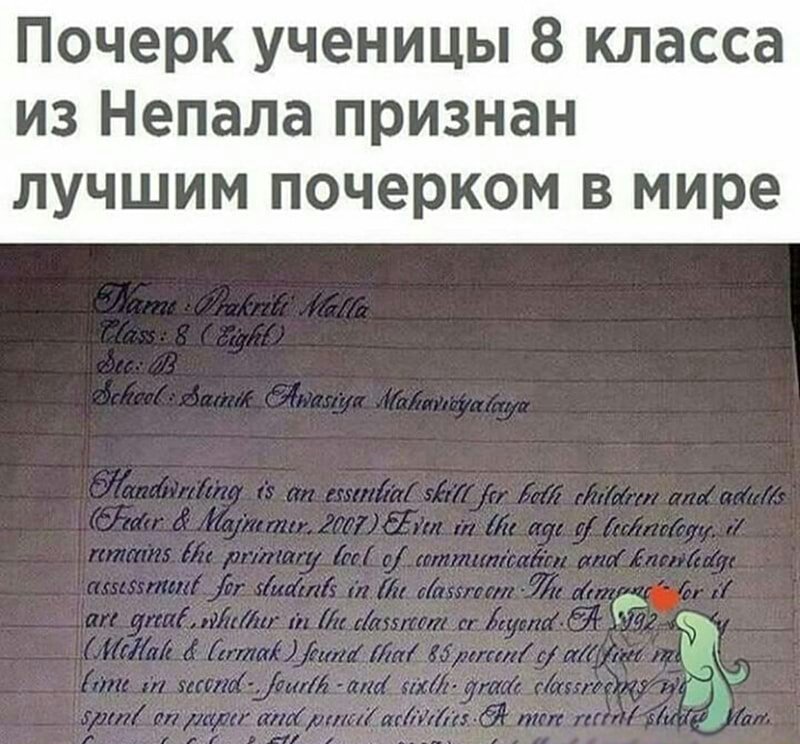 Почерк ученицы 8 класса
из Непала признан
лучшим почерком в мире
Name : Prakriti Malla
Class : 8 (Eight)
Sec : B
School : Sainik Awasiya Mahavidyalaya
Handwriting is an essential skill for both children and adults
(Feder & Majnemer, 2007) Even in the age of technology, it
remains the primary tool of communication and knowledge
assessment for students in the classroom. The demands for it
are great, whether in the classroom or beyond. A 1992
(McHale & Cermak) found that 85 percent of all fine
time in second-, fourth - and sixth- grade classrooms
spent on paper and pencil activities. A more recent